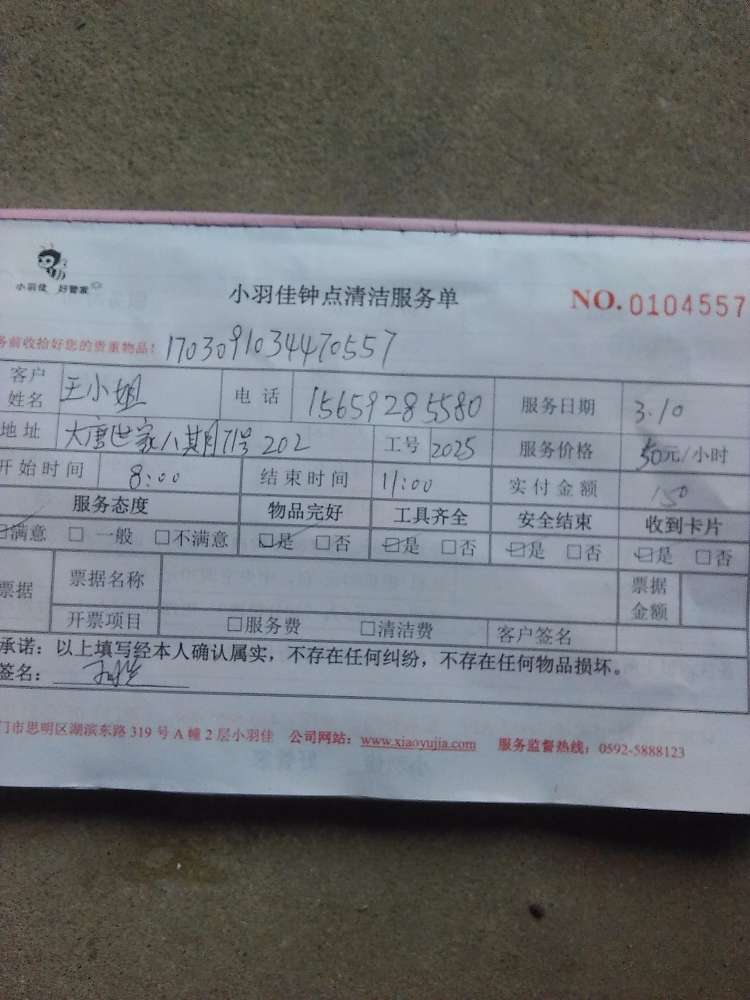 小羽佳 好管家
小羽佳钟点清洁服务单
NO. 0104557
务前收拾好您的贵重物品: 170309103447055​7
客户姓名 王小姐 电话 15659285580 服务日期 3.10
地址 大唐世家八期71号202 工号 2025 服务价格 50元/小时
开始时间 8:00 结束时间 11:00 实付金额 150
服务态度 物品完好 工具齐全 安全结束 收到卡片
☑满意 □一般 □不满意 ☑是 □否 ☑是 □否 ☑是 □否 ☑是 □否
票据 票据名称 票据金额
开票项目 □服务费 □清洁费 客户签名
承诺:以上填写经本人确认属实,不存在任何纠纷,不存在任何物品损坏。
签名:
门市思明区湖滨东路319号A幢2层小羽佳 公司网站:www.xiaoyujia.com 服务监督热线:0592-5888123